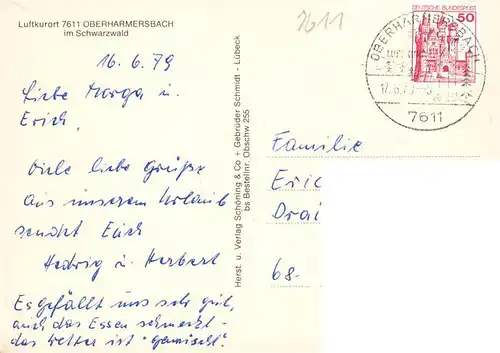 Luftkurort 7611 OBERHARMERSBACH
im Schwarzwald
7611
16.6.79
Liebe Marga u.
Erich,
Viele liebe Grüße
aus unserem Urlaub
sendet Euch
Hedwig u. Herbert
Es gefällt uns sehr gut,
auch das Essen schmeckt -
das Wetter ist "gemischt".
Herst. u. Verlag Schöning & Co + Gebrüder Schmidt - Lübeck
bs Bestellnr. Obschw 255
DEUTSCHE BUNDESPOST
50
OBERHARMERSBACH
7611
Familie
Eric
Drai
68-